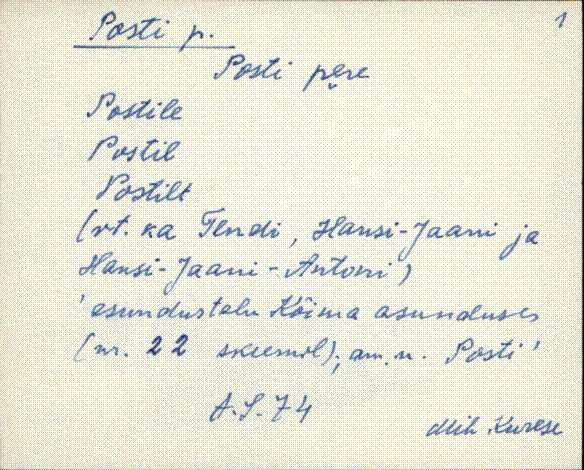 1
Posti p.
Posti pere
Postile
Postil
Postilt
(vt. ka Tendi, Hansi-Jaani ja
Hansi-Jaani-Antoni)
'asundustalu Kõima asunduses
(nr. 22 skeemil); am. n. Posti'
A.S.74
Mih Kurese